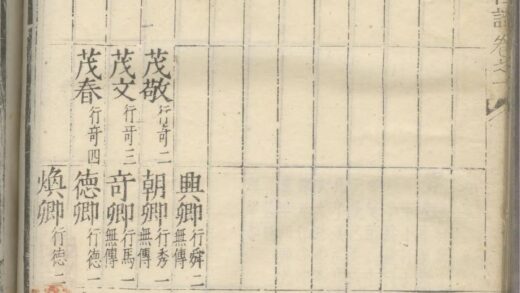 譜卷之一
茂敬行竒二
茂文行竒三
茂春行竒四
興卿行舜二無傳
朝卿行秀一無傳
竒卿行馬一無傳
德卿行德一
煥卿行德二